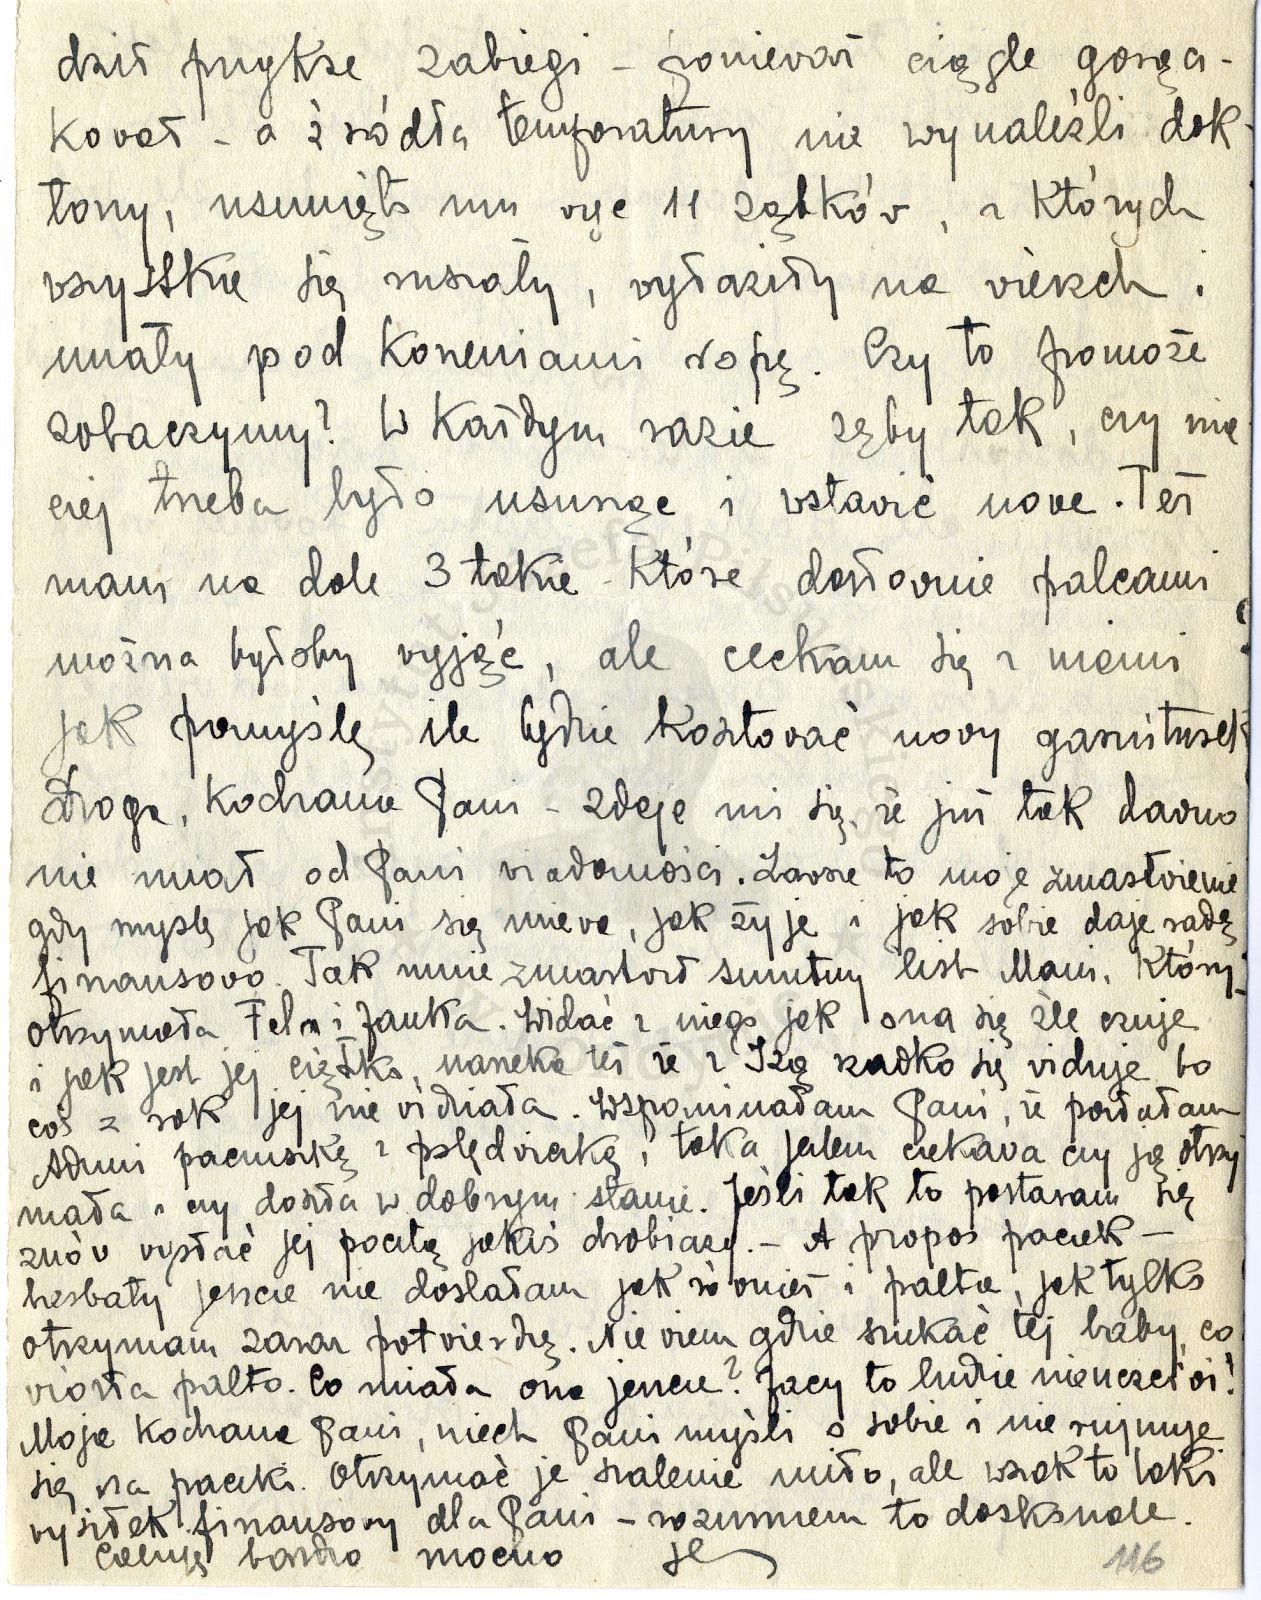 dził przykze zabiegi - ponieważ ciągle gorącz-
kował - a źródła temperatury nie wynaleźli dok-
torzy, usunięto mu więc 11 ząbków, z których
wszystkie się ruszały, wyłaziły na wierzch i
miały pod korzeniami ropę. Czy to pomoże
zobaczymy? W każdym razie zęby tak, czy ina
czej trzeba było usunąć i wstawić nowe. Też
mam na dole 3 takie które dosłownie palcami
można byłoby wyjąć, ale cackam się z niemi
jak pomyślę ile będzie kosztować nowy garniturek
Droga, kochana Pani - zdaje mi się, że już tak dawno
nie miał od Pani wiadomości. Zawsze to moje zmartwienie
gdy myślę jak Pani się miewa, jak żyje i jak sobie daje radę
finansowo. Tak mnie zmartwił smutny list Mani, który
otrzymała Fela i Janka. Widać z niego jak ona się źle czuje
i jak jest jej ciężko, narzeka też że z Izą rzadko się widuje bo
coś z rok jej nie widziała. Wspominałam Pani, że posłałam
Adzini paczuszkę z polędwiczką, taka jestem ciekawa czy ją otrzy
mała i czy doszła w dobrym stanie. Jeśli tak to postaram się
znów wysłać jej pocztą jakiś drobiazg. - A propos paczek -
herbaty jeszcze nie dostałam jak również i palta, jak tylko
otrzymam zaraz potwierdzę. Nie wiem gdzie szukać tej baby, co
wiozła palto. Co miała ona jeszcze? Jacy to ludzie nieuczciwi!
Moja kochana Pani, niech Pani myśli o sobie i nie rujnuje
się na paczki. Otrzymać je szalenie miło, ale wszak to taki
wysiłek finansowy dla Pani - rozumiem to doskonale.
Całuję bardzo mocno
116